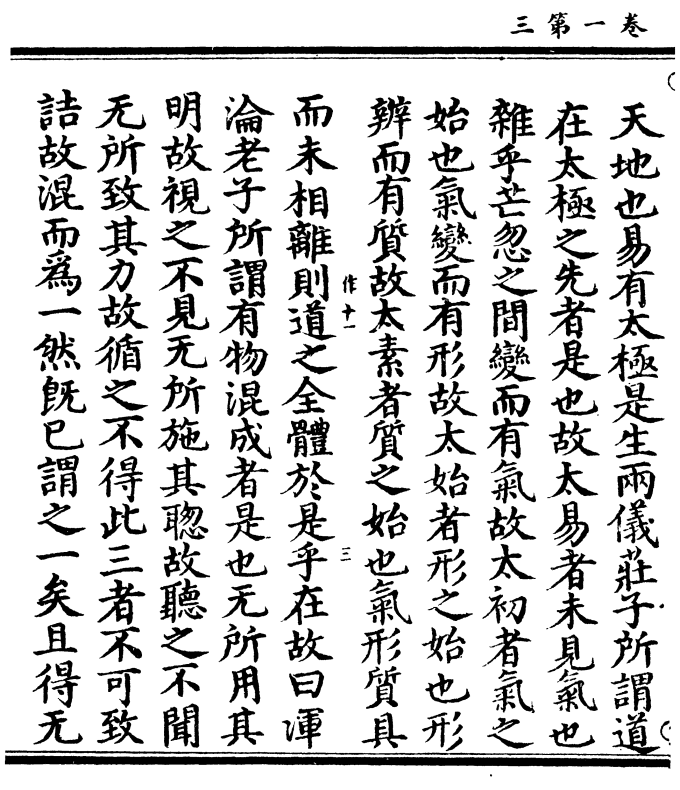 卷一第三
天地也易有太極是生兩儀莊子所謂道
在太極之先者是也故太易者未見氣也
雜乎芒忽之間變而有氣故太初者氣之
始也氣變而有形故太始者形之始也形
辨而有質故太素者質之始也氣形質具
作十一
三
而未相離則道之全體於是乎在故曰渾
淪老子所謂有物混成者是也无所用其
明故視之不見无所施其聦故聽之不聞
无所致其力故循之不得此三者不可致
詰故混而爲一然旣已謂之一矣且得无